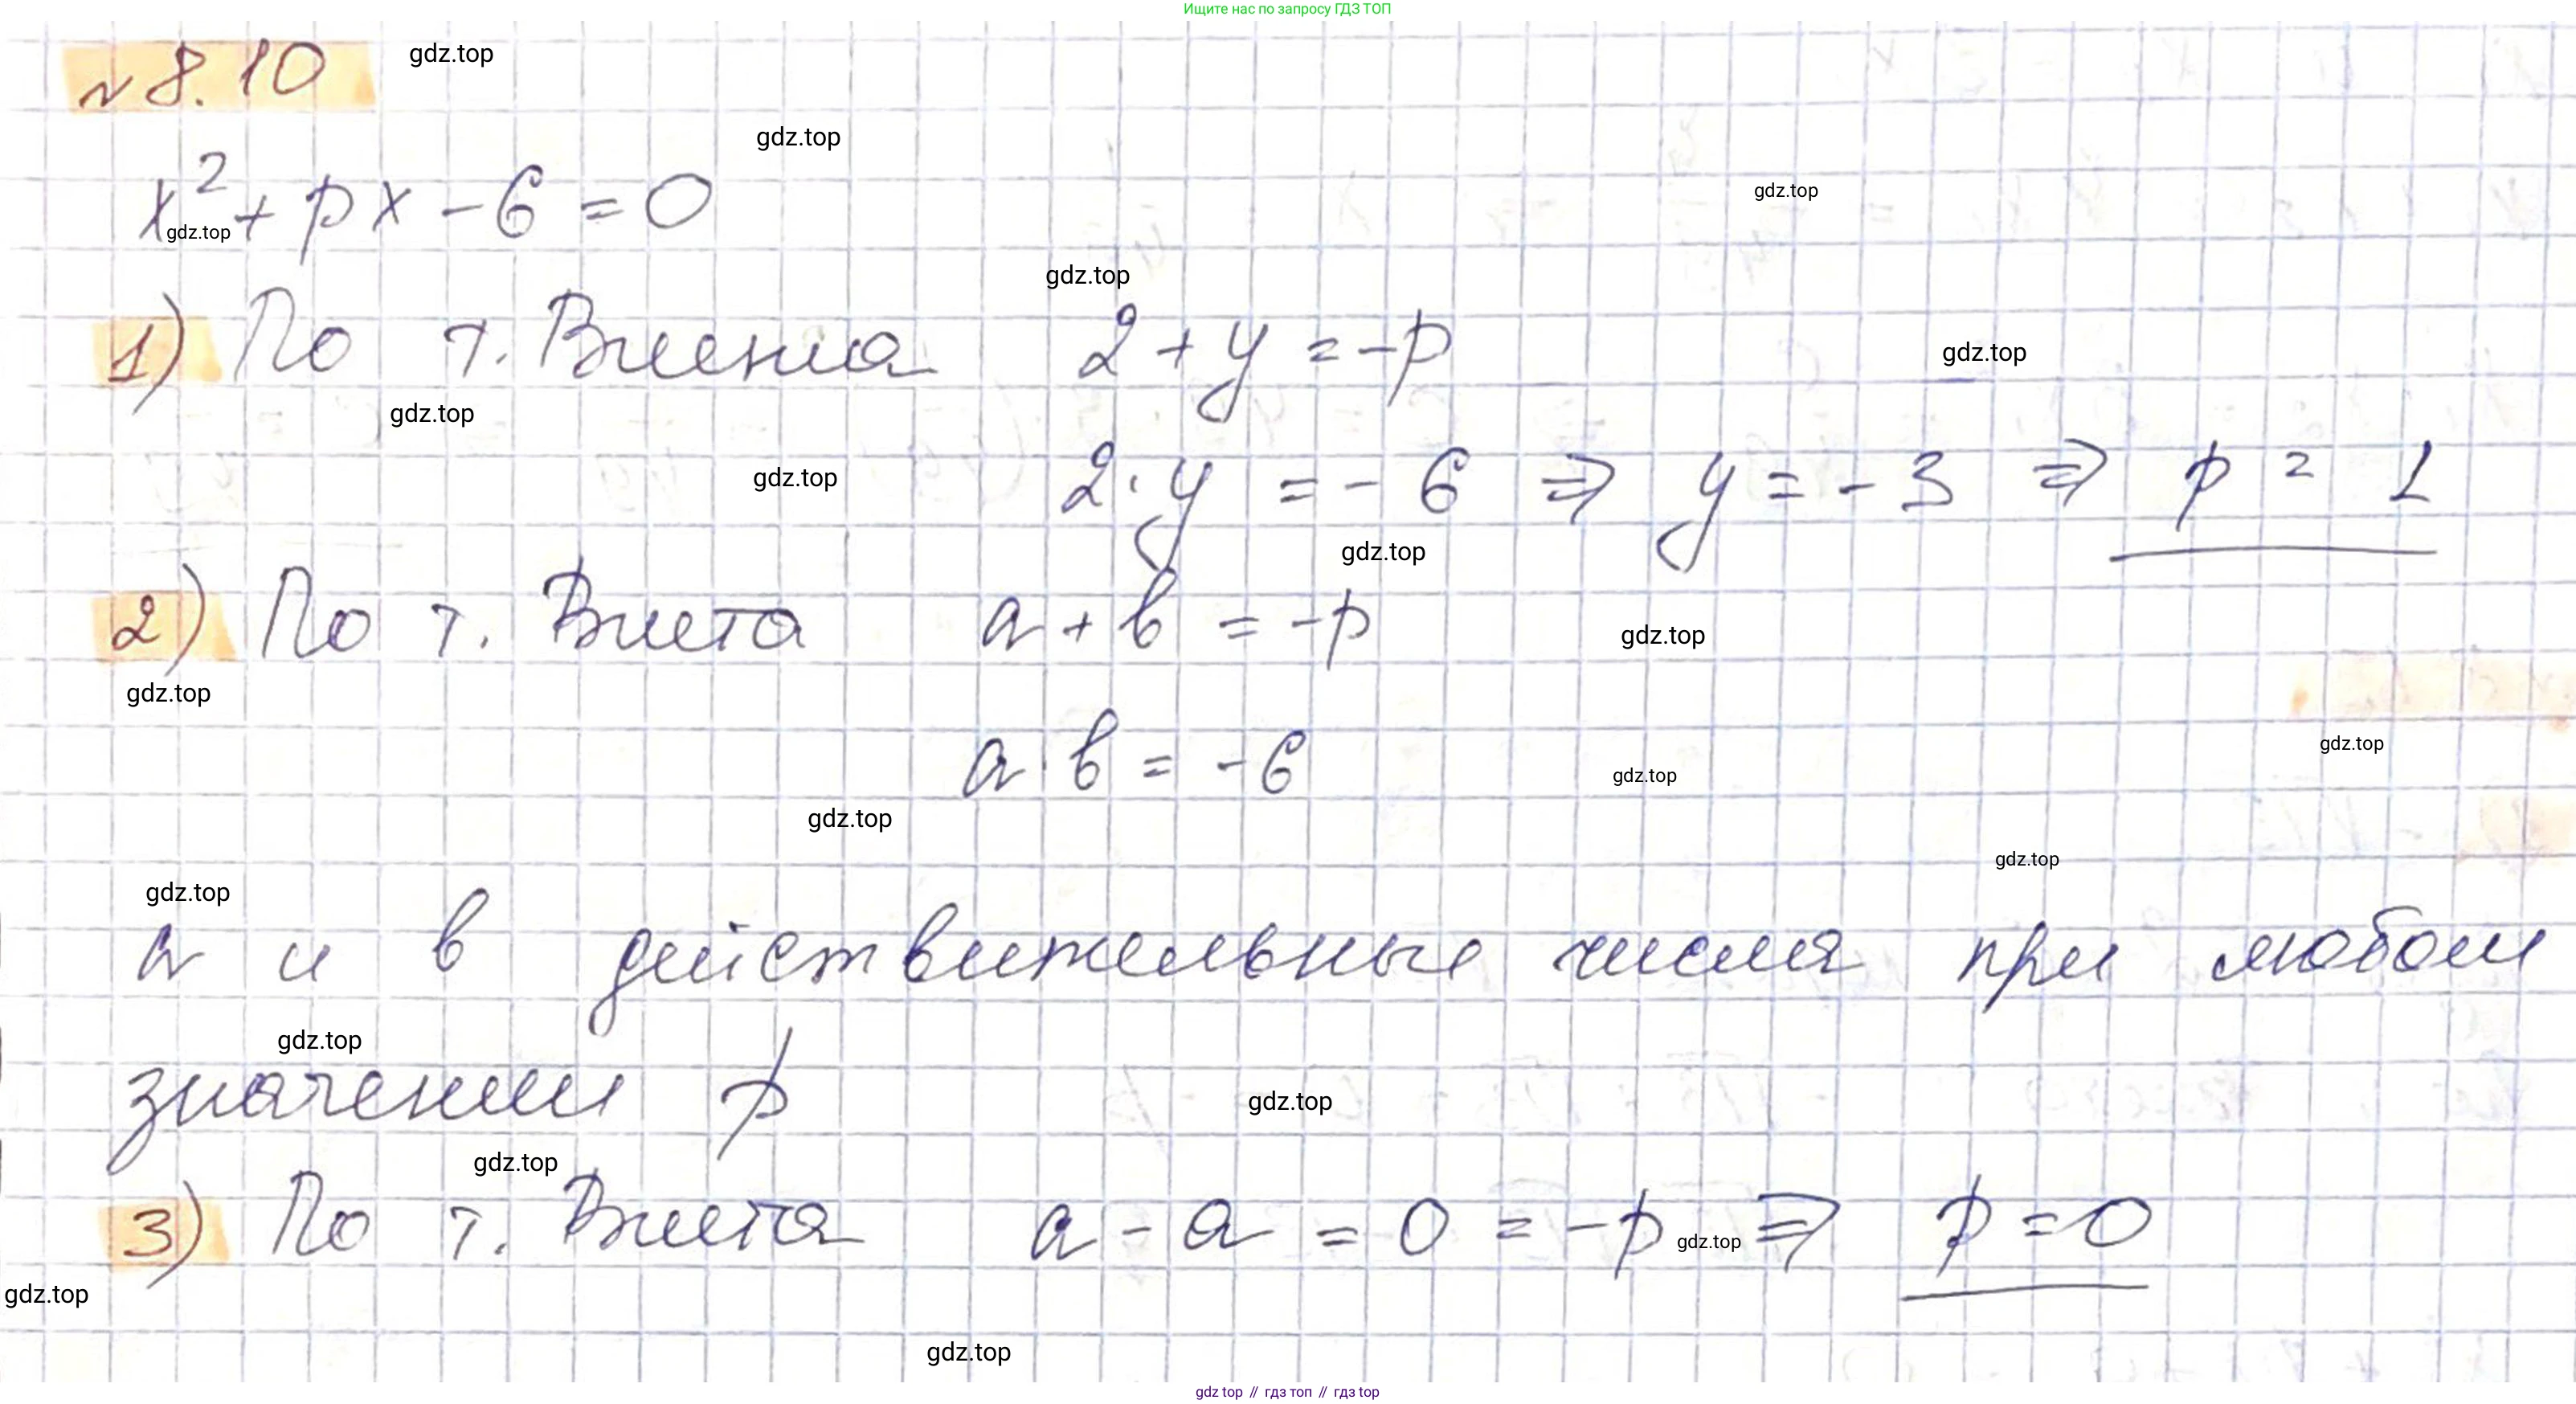 Ищите нас по запросу ГДЗ ТОП
№ 8.10
gdz.top
gdz.top
gdz.top
x² + px - 6 = 0
gdz.top
gdz.top
1) По т. Виета 2 + y = -p
gdz.top
gdz.top
gdz.top
2 · y = - 6 ⇒ y = - 3 ⇒ p = 1
gdz.top
2) По т. Виета a + b = -p
gdz.top
gdz.top
a · b = -6
gdz.top
gdz.top
gdz.top
gdz.top
gdz.top
a и b действительные числа при любом
gdz.top
значении p
gdz.top
gdz.top
3) По т. Виета a - a = 0 = -p ⇒ p = 0
gdz.top
gdz.top
gdz.top
gdz top // гдз топ // гдз top